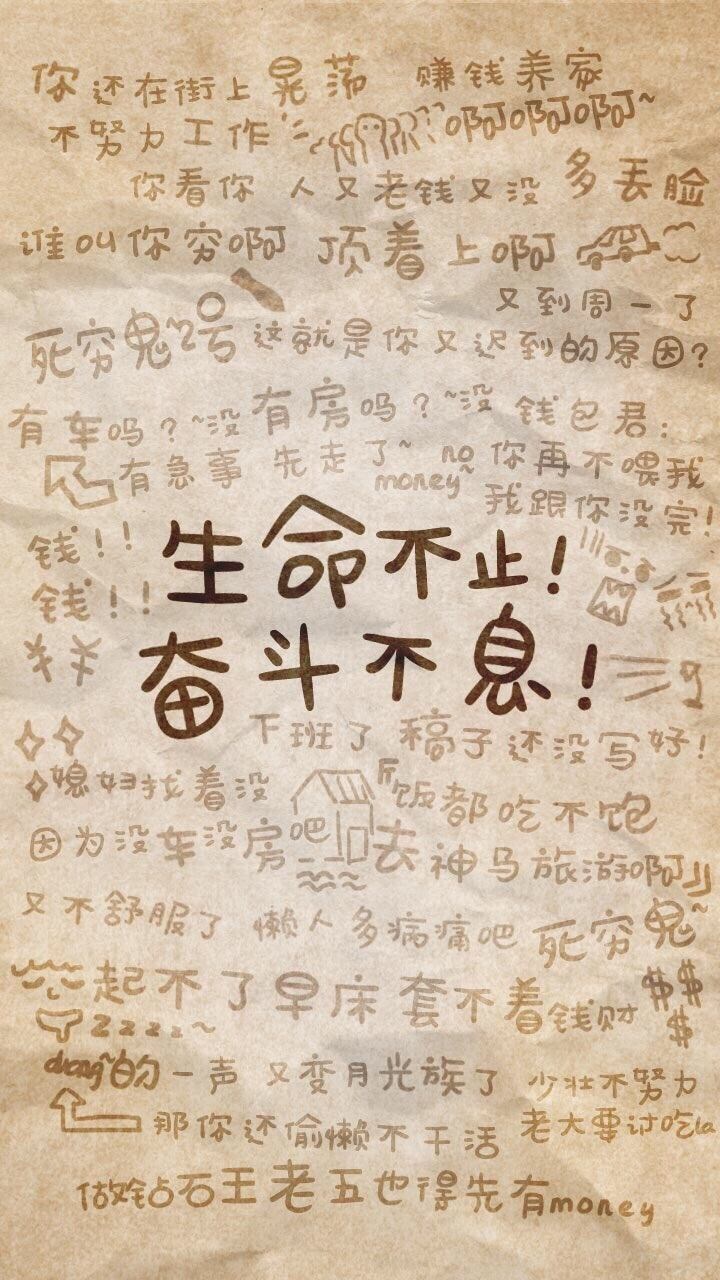 你还在街上晃荡 赚钱养家
不努力工作 啊啊啊~
你看你 人又老钱又没 多丢脸
谁叫你穷啊 顶着上啊
又到周一了
死穷鬼~2号 这就是你又迟到的原因?
有车吗?~没有房吗?~没 钱包君:
有急事 先走了~ no money~ 你再不喂我
我跟你没完!
钱!!
钱!!
生命不止!
奋斗不息!
¥¥
下班了 稿子还没写好!
媳妇找着没 饭都吃不饱
因为没车没房吧 去神马旅游啊
又不舒服了 懒人多病痛吧 死穷鬼~
起不了早床 套不着钱财 $$$
zzzz~
duang~的一声 又变月光族了 少壮不努力
那你还偷懒不干活 老大要讨吃la
做钻石王老五也得先有money